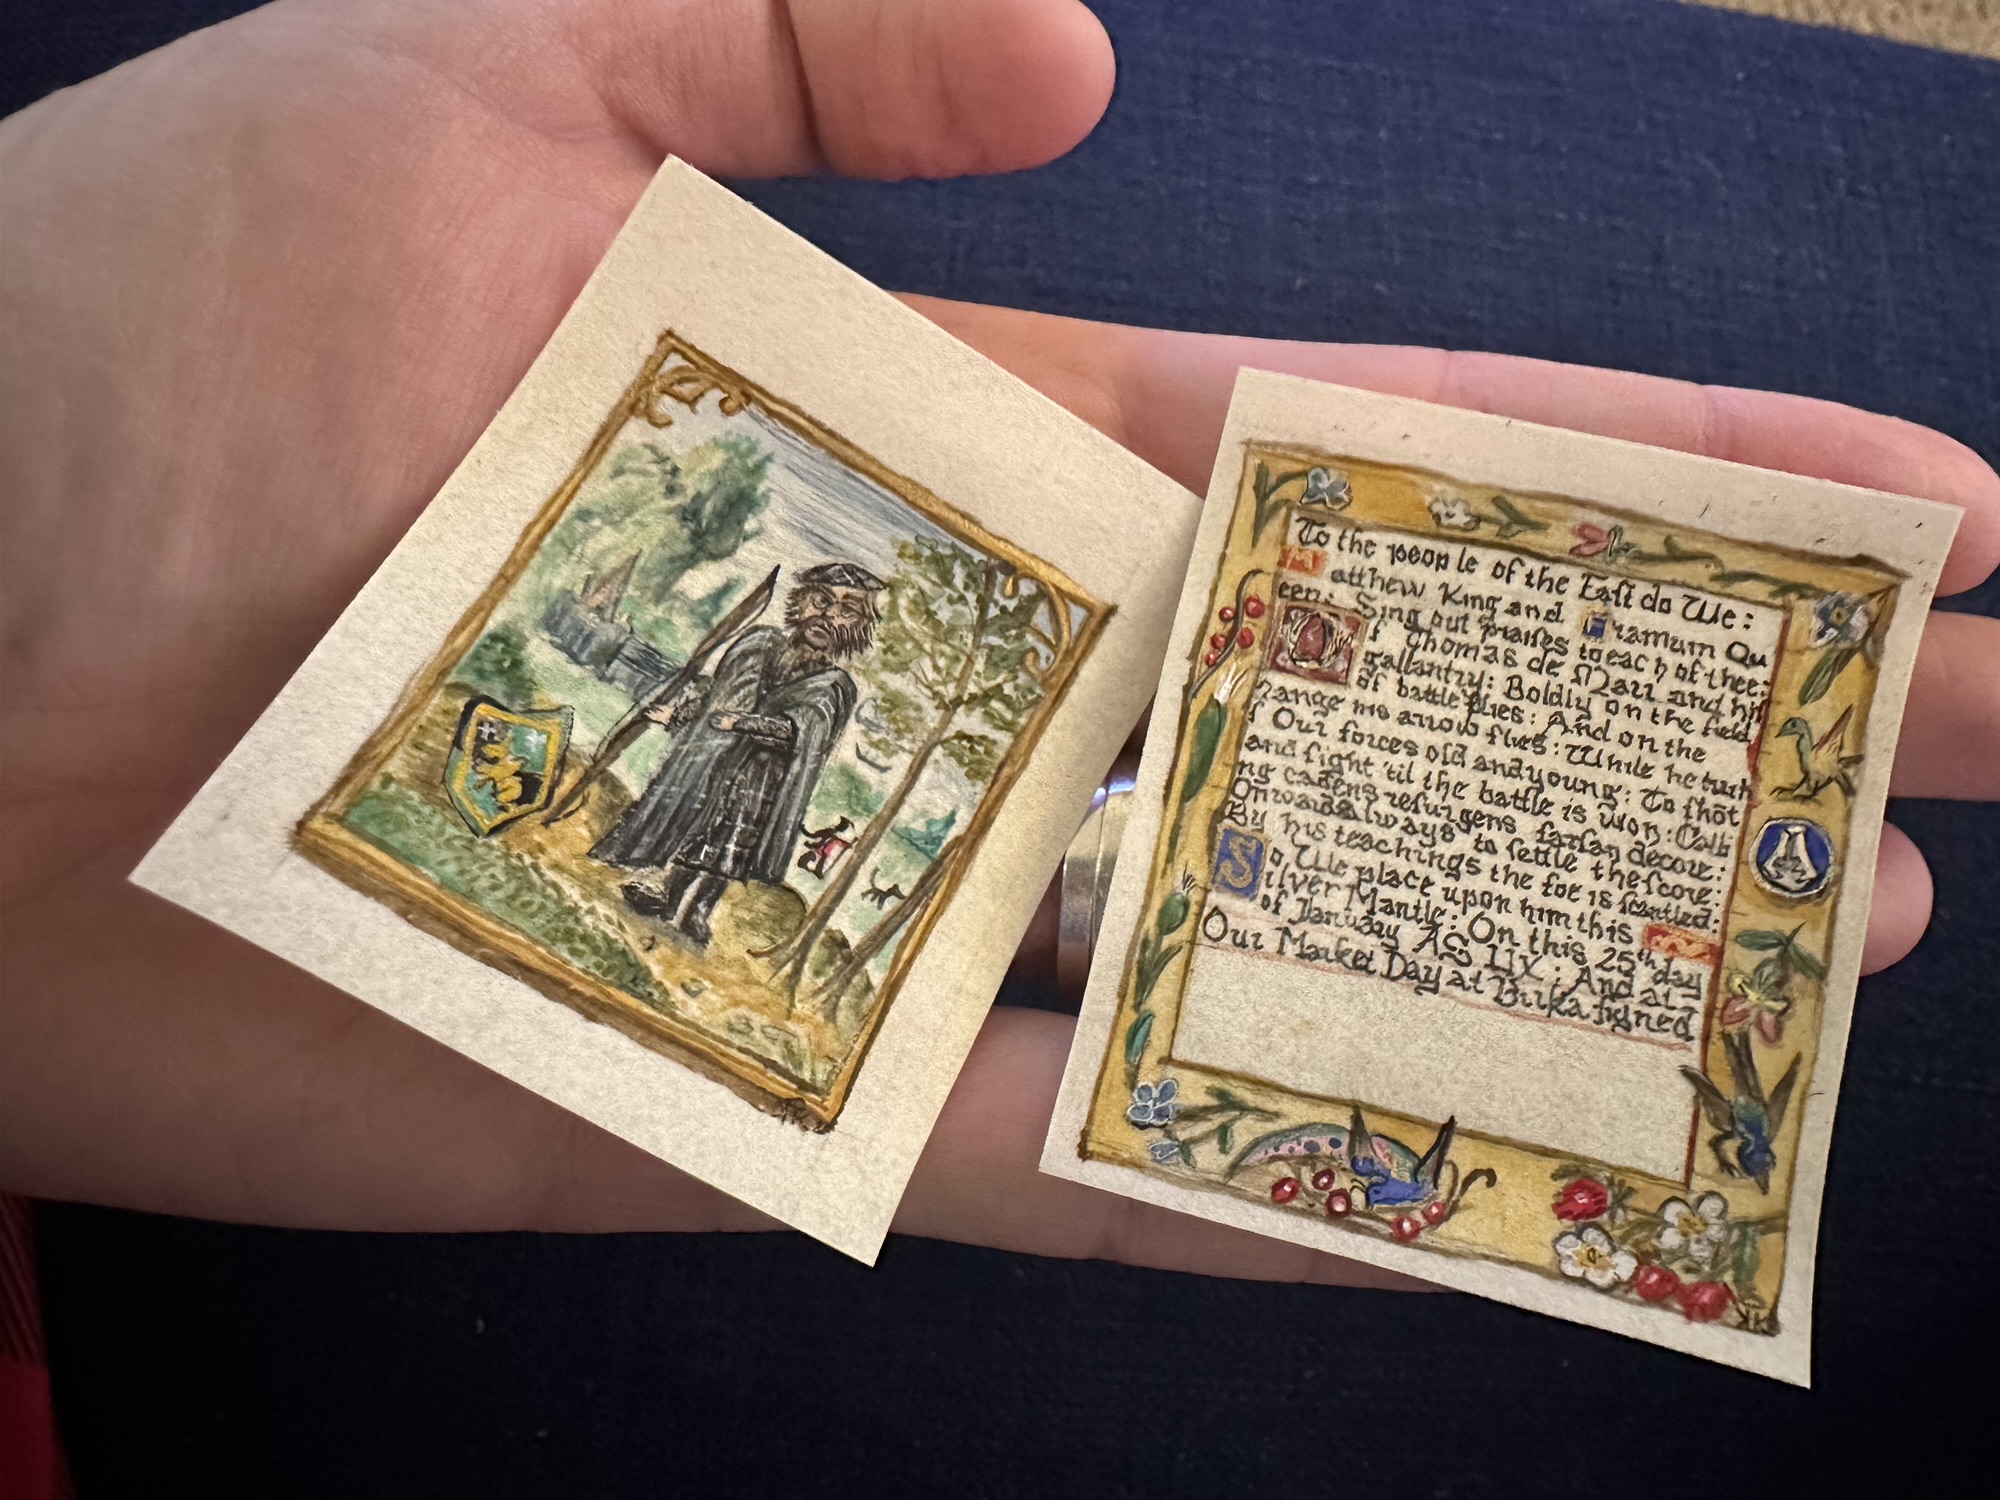 To the people of the Eaſt do We:
Matthew King and Framum Qu
een: Sing out praiſes to each of thee:
Of Thomas de Marr and his
gallantry: Boldly on the field
of battle flies: And on the
Range his arrow flies: While he turh
ſ Our forces old and young: To ſhōt
and fight 'til the battle is won: Calli
ng cadens reſurgens farſan decore:
Onwards always to ſettle the ſcore:
By his teachings the foe is
So, We place upon him this
Silver Mantle: On this 25th day
of January AS LIX: And at
Our Market Day at Birka ſigned
KK